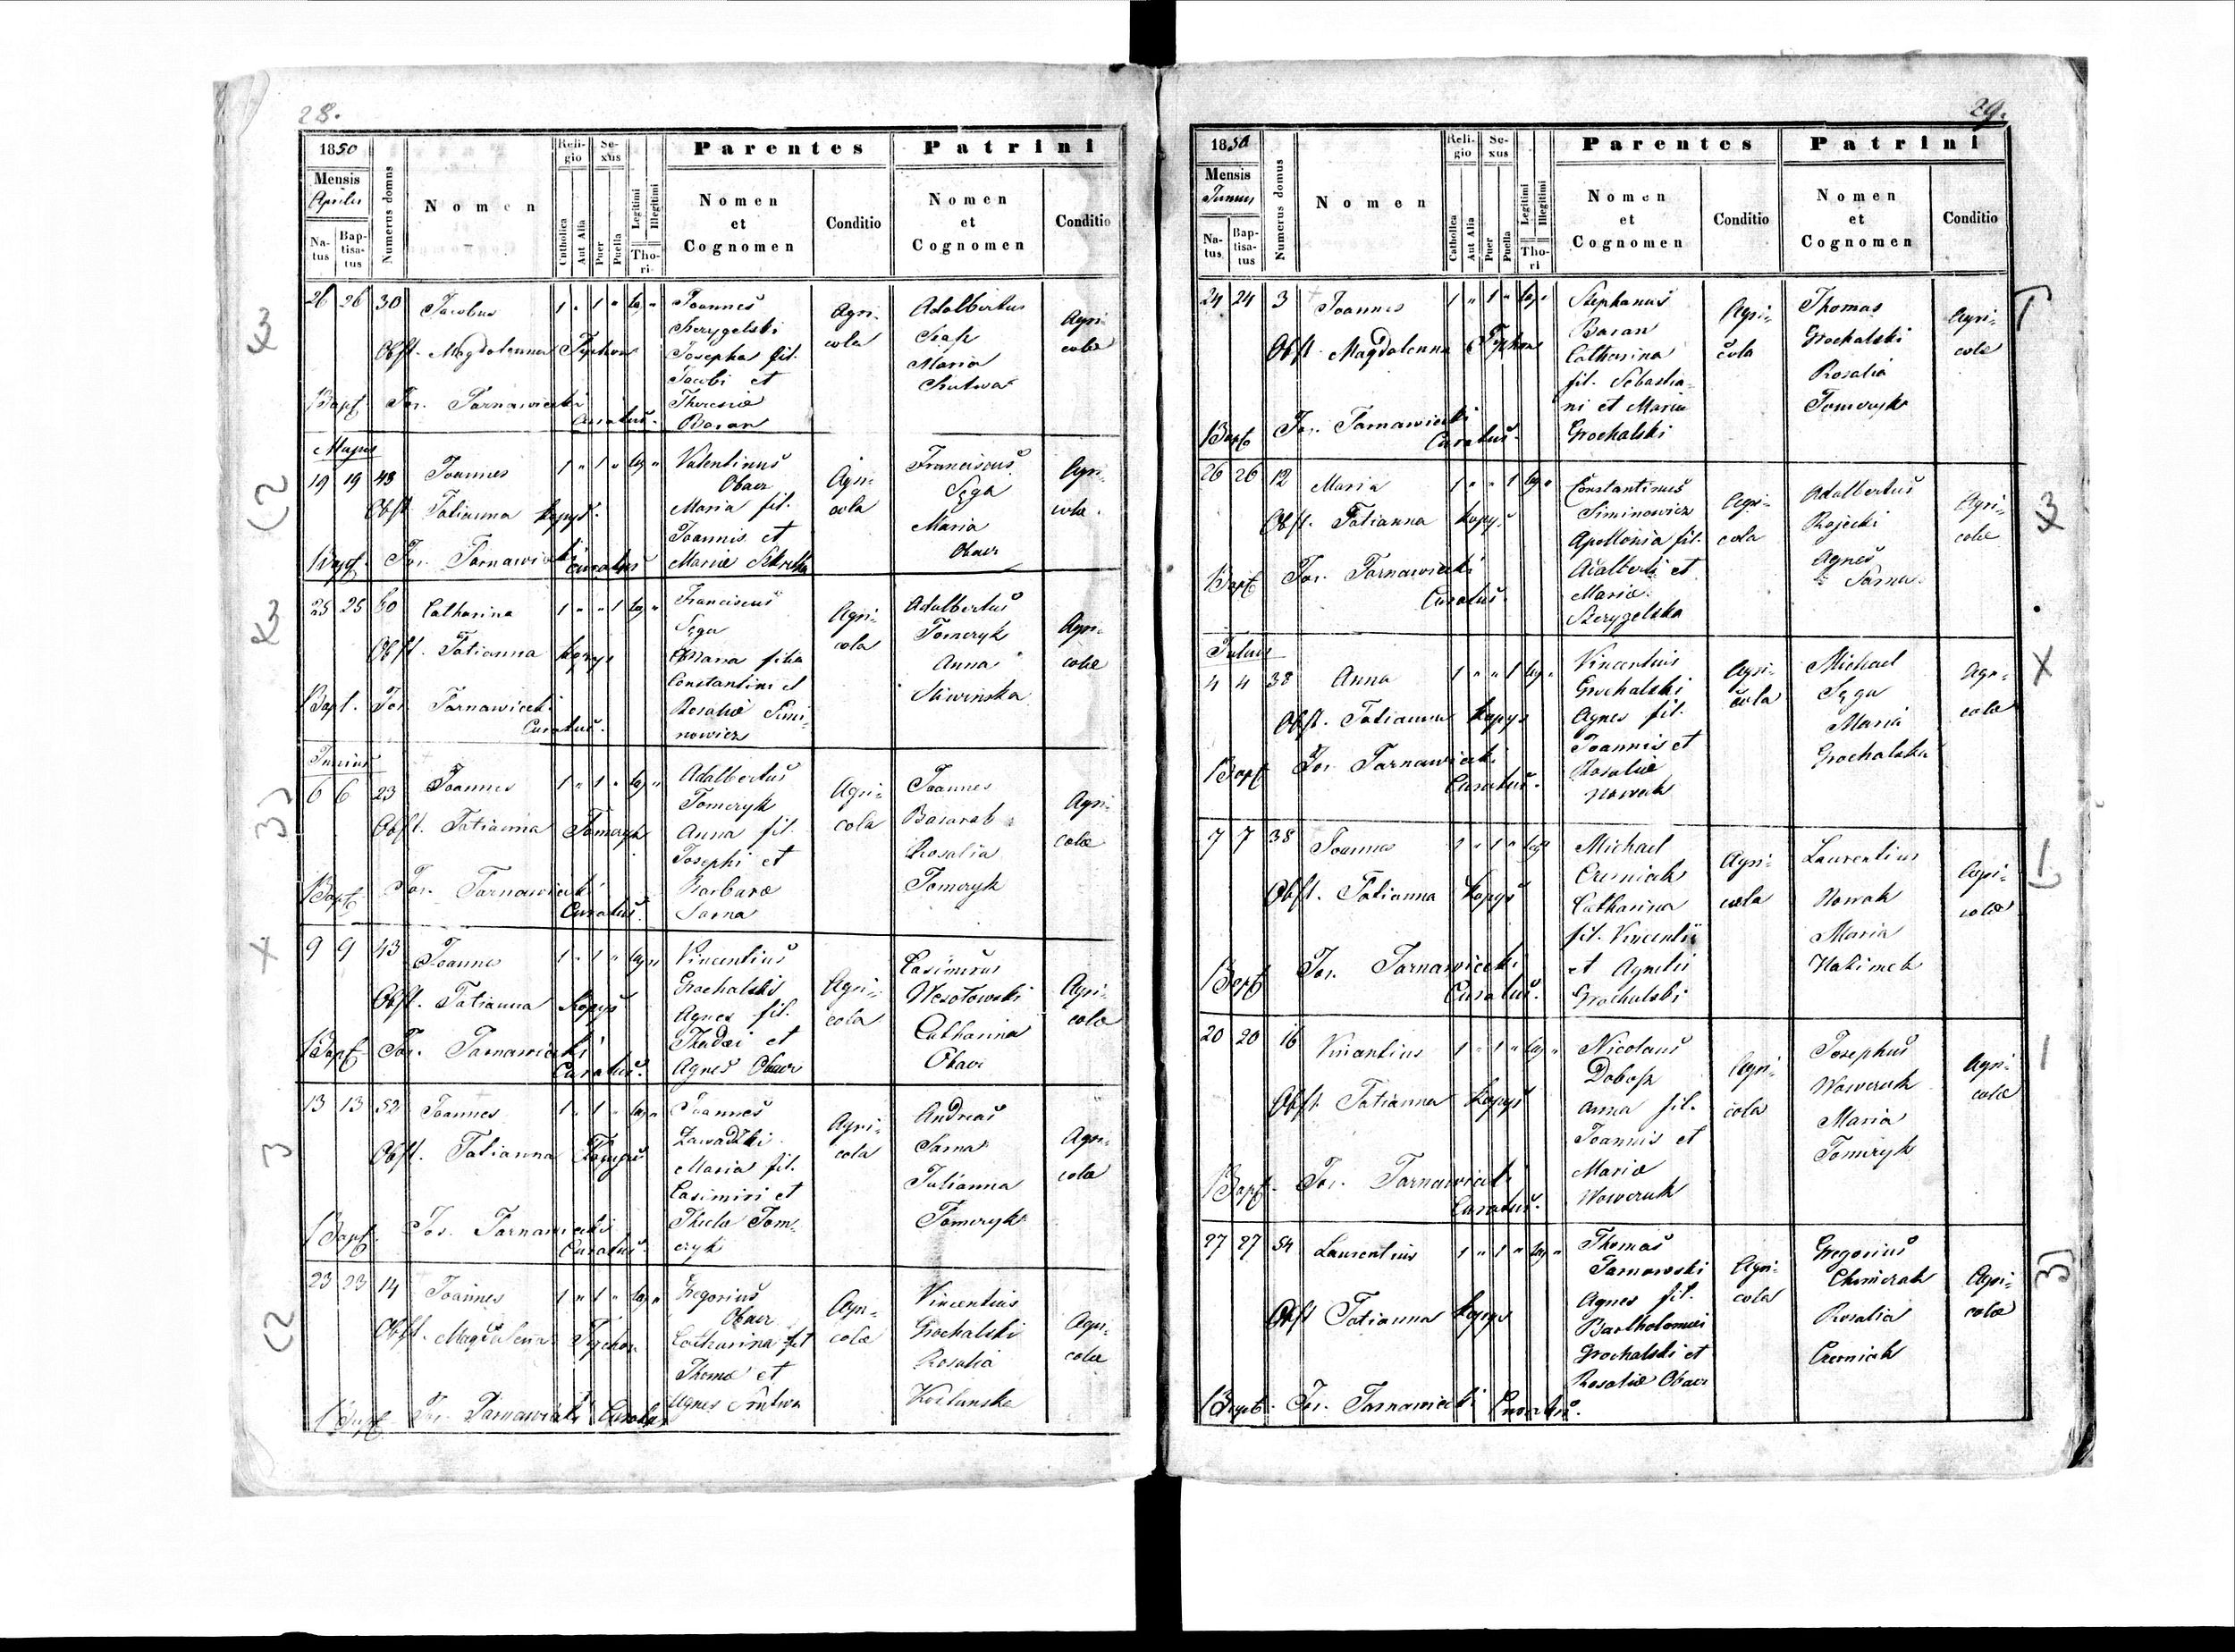 28.
1850
Mensis
Aprilis
Na-
tus
Bap-
tisa-
tus
Numerus domus
Nomen
Reli-
gio
Catholica
Aut Alia
Se-
xus
Puer
Puella
Legitimi
Illegitimi
Tho-
ri
Parentes
Nomen
et
Cognomen
Conditio
Patrini
Nomen
et
Cognomen
Conditio
26 26 30 Jacobus 1 " 1 " leg "
Obst. Magdalenna
Bapt. Jos. Tarnawiecki
Curatus.
Joannes
Josepha fil.
Jacobi et
Theresiæ
Baran
Agri-
cola
Adalbertus
Maria
Agri-
colæ
Majus
19 19 43 Joannes 1 " 1 " leg "
Obst. Tatianna Kopys.
Bapt. Jos. Tarnawiecki Curatus
Valentinus
Obacz
Maria fil.
Joannis et
Mariæ
Agri-
cola
Franciscus
Sęga
Maria
Obacz
Agri-
colæ.
25 25 60 Catharina 1 " " 1 leg "
Obst. Tatianna Kopys
Bapt. Jos. Tarnawiecki
Curatus.
Franciscus
Sęga
filia
Constantini et
Rosaliæ Simi-
nowicz
Agri-
cola
Adalbertus
Tomeryk
Anna
Sliwinska
Agri-
colæ
Junius
6 6 23 Joannes 1 " 1 " leg "
Obst. Tatianna Tomeryk
Bapt. Jos. Tarnawiecki
Curatus.
Adalbertus
Tomeryk
Anna fil.
Josephi et
Barbaræ
Sarna
Agri-
cola
Joannes
Basarab
Rosalia
Tomeryk
Agri-
colæ
9 9 43 Joannes 1 " 1 " leg "
Obst. Tatianna Kopys
Bapt. Jos. Tarnawiecki
Curatus.
Vincentius
Grochalski
Agnes fil.
Thadæi et
Agnes Obacz
Agri-
cola
Casimirus
Wesołowski
Catharina
Obacz
Agri-
colæ
13 13 52 Joannes 1 " 1 " leg "
Obst. Tatianna
Bapt. Jos. Tarnawiecki
Curatus.
Joannes
Zawadzki
Maria fil.
Casimiri et
Theclæ Tom-
eryk
Agri-
cola
Andreas
Sarna
Julianna
Tomeryk
Agri-
colæ
23 23 14 Joannes 1 " 1 " leg "
Obst. Magdalena
Bapt. Jos. Tarnawiecki Curatus
Gregorius
Obacz
Catharina fil
Thomæ et
Agnes
Agri-
colæ
Vincentius
Grochalski
Rosalia
Agri-
colæ
29.
1850
Mensis
Junius
Na-
tus
Bap-
tisa-
tus
Numerus domus
Nomen
Reli-
gio
Catholica
Aut Alia
Se-
xus
Puer
Puella
Legitimi
Illegitimi
Tho-
ri
Parentes
Nomen
et
Cognomen
Conditio
Patrini
Nomen
et
Cognomen
Conditio
24 24 3 Joannes 1 " 1 " leg "
Obst. Magdalenna
Bapt Jos. Tarnawiecki
Curatus.
Stephanus
Baran
Catharina
fil. Sebastia-
ni et Maria
Grochalski
Agri-
cola
Thomas
Grochalski
Rosalia
Tomeryk
Agri-
colæ
26 26 12 Maria 1 " " 1 leg "
Obst. Tatianna Kopys
Bapt Jos. Tarnawiecki
Curatus.
Constantinus
Siminowicz
Apollonia fil.
Adalberti et
Mariæ
Agri-
cola
Adalbertus
Rojecki
Agnes
Sarna
Agri-
colæ
Julius
4 4 38 Anna 1 " " 1 leg "
Obst. Tatianna Kopys
Bapt Jos. Tarnawiecki
Curatus.
Vincentius
Grochalski
Agnes fil.
Joannis et
Rosaliæ
Nowak
Agri-
cola
Michael
Sęga
Maria
Grochalska
Agri-
colæ
7 7 38 Joannes 1 " 1 " leg
Obst. Tatianna Kopys
Bapt Jos. Tarnawiecki
Curatus.
Michael
Czerniak
Catharina
fil. Vincentii
et Agnetis
Grochalski
Agri-
cola
Laurentius
Nowak
Maria
Agri-
colæ
20 20 16 Vincentius 1 " 1 " leg "
Obst Tatianna Kopys
Bapt. Jos. Tarnawiecki
Curatus.
Nicolaus
Dobosz
Anna fil.
Joannis et
Mariæ
Wowczuk
Agri-
cola
Josephus
Wowczuk
Maria
Tomeryk
Agri-
colæ
27 27 54 Laurentius 1 " 1 " leg "
Obst Tatianna Kopys
Bapt. Jos. Tarnawiecki Curatus.
Thomas
Tarnowski
Agnes fil.
Bartholomæi
Grochalski et
Rosaliæ Obacz
Agri-
cola
Gregorius
Rosalia
Czerniak
Agri-
colæ